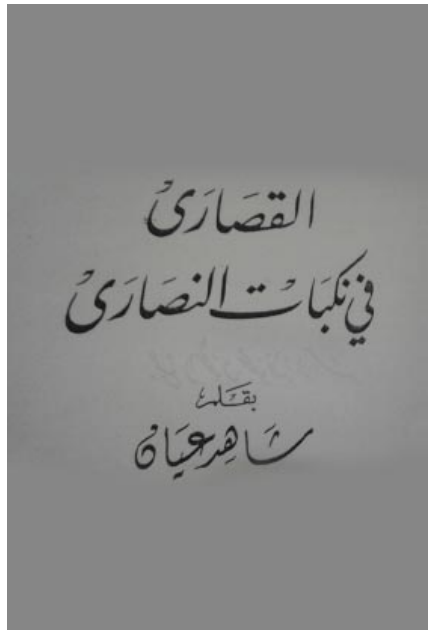 القصَارَىٰ
في نكبَات النصَارَىٰ
بقلم
شَاهِد عيَان